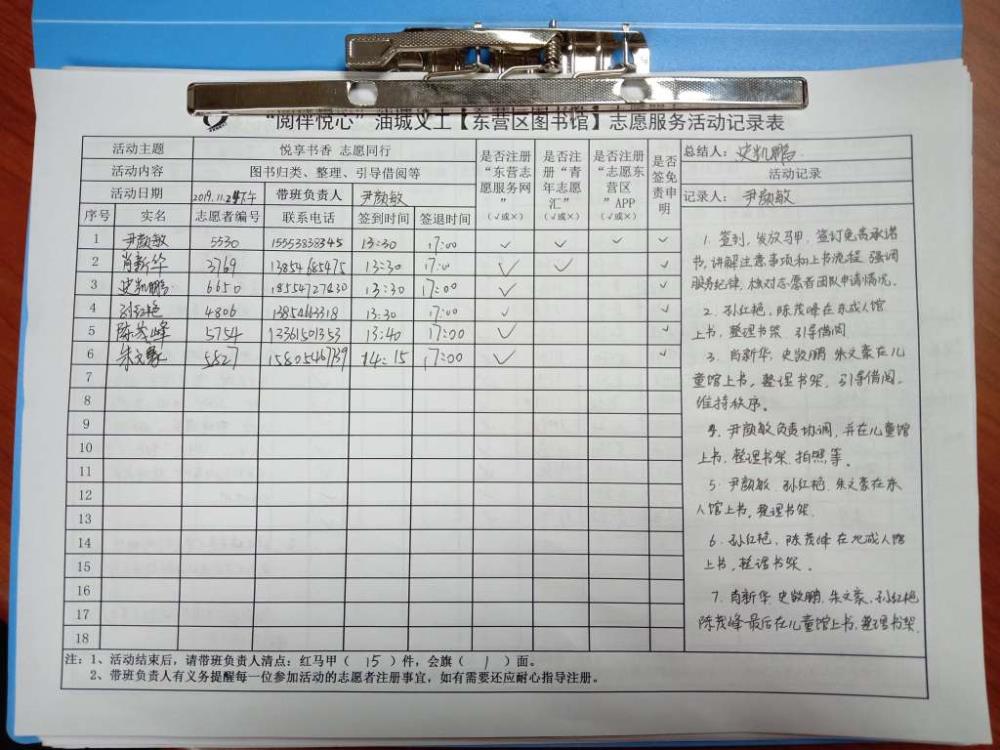 “阅伴悦心”油城义工【东营区图书馆】志愿服务活动记录表
活动主题 悦享书香 志愿同行
活动内容 图书归类、整理、引导借阅等
活动日期 2019.11.2 下午 带班负责人 尹颜敏
是否注册“东营志愿服务网”(√或×) 是否注册“青年志愿汇”(√或×) 是否注册“志愿东营区”APP(√或×) 是否签免责申明
总结人：史凯鹏
活动记录
记录人：尹颜敏
序号 实名 志愿者编号 联系电话 签到时间 签退时间
1 尹颜敏 5530 15553838345 13:30 17:00 √ √ √ √
2 肖新华 3769 13854685475 13:30 17:00 √ √ √
3 史凯鹏 6650 18554727630 13:30 17:00 √ √
4 孙红艳 4806 13:30 17:00 √ √
5 陈茂峰 5754 13361501353 13:40 17:00 √ √
6 朱文豪 5827 14:15 17:00 √ √
7
8
9
10
11
12
13
14
15
16
17
18
1. 签到，发放马甲，签订免责承诺
书，讲解注意事项和上书流程，强调
服务纪律，核对志愿者团队申请情况。
2. 孙红艳，陈茂峰在成人馆
上书，整理书架，引导借阅
3. 肖新华，史凯鹏 朱文豪在儿
童馆上书，整理书架，引导借阅，
维持秩序。
4. 尹颜敏负责协调，并在儿童馆
上书，整理书架，拍照等。
5. 尹颜敏 孙红艳 朱文豪在
人馆上书，整理书架
6. 孙红艳，陈茂峰在成人馆
上书，整理书架。
7. 肖新华，史凯鹏，朱文豪，孙红艳
陈茂峰最后在儿童馆上书，整理书架
注：1、活动结束后，请带班负责人清点：红马甲（ 15 ）件，会旗（ 1 ）面。
2、带班负责人有义务提醒每一位参加活动的志愿者注册事宜，如有需要还应耐心指导注册。